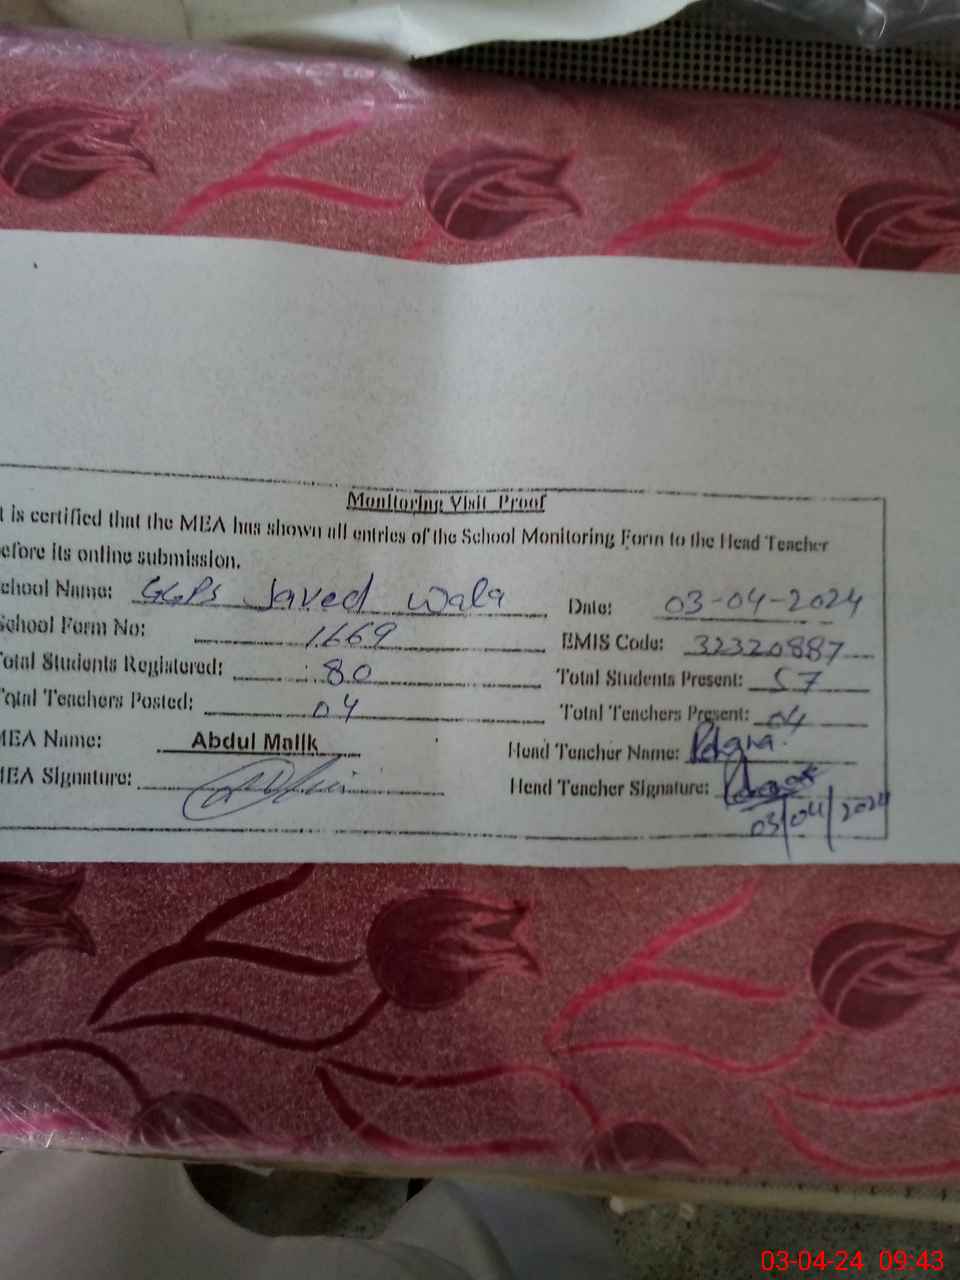 Monitoring Visit Proof
t is certified that the MEA has shown all entries of the School Monitoring Form to the Head Teacher
efore its online submission.
chool Name: GGPS Javed Wala Date: 03-04-2024
School Form No: 1669 EMIS Code: 32320887
Total Students Registered: 80 Total Students Present: 57
Total Teachers Posted: 04 Total Teachers Present: 04
MEA Name: Abdul Malik Head Teacher Name:
MEA Signature: Head Teacher Signature:
03/04/2024
03-04-24 09:43